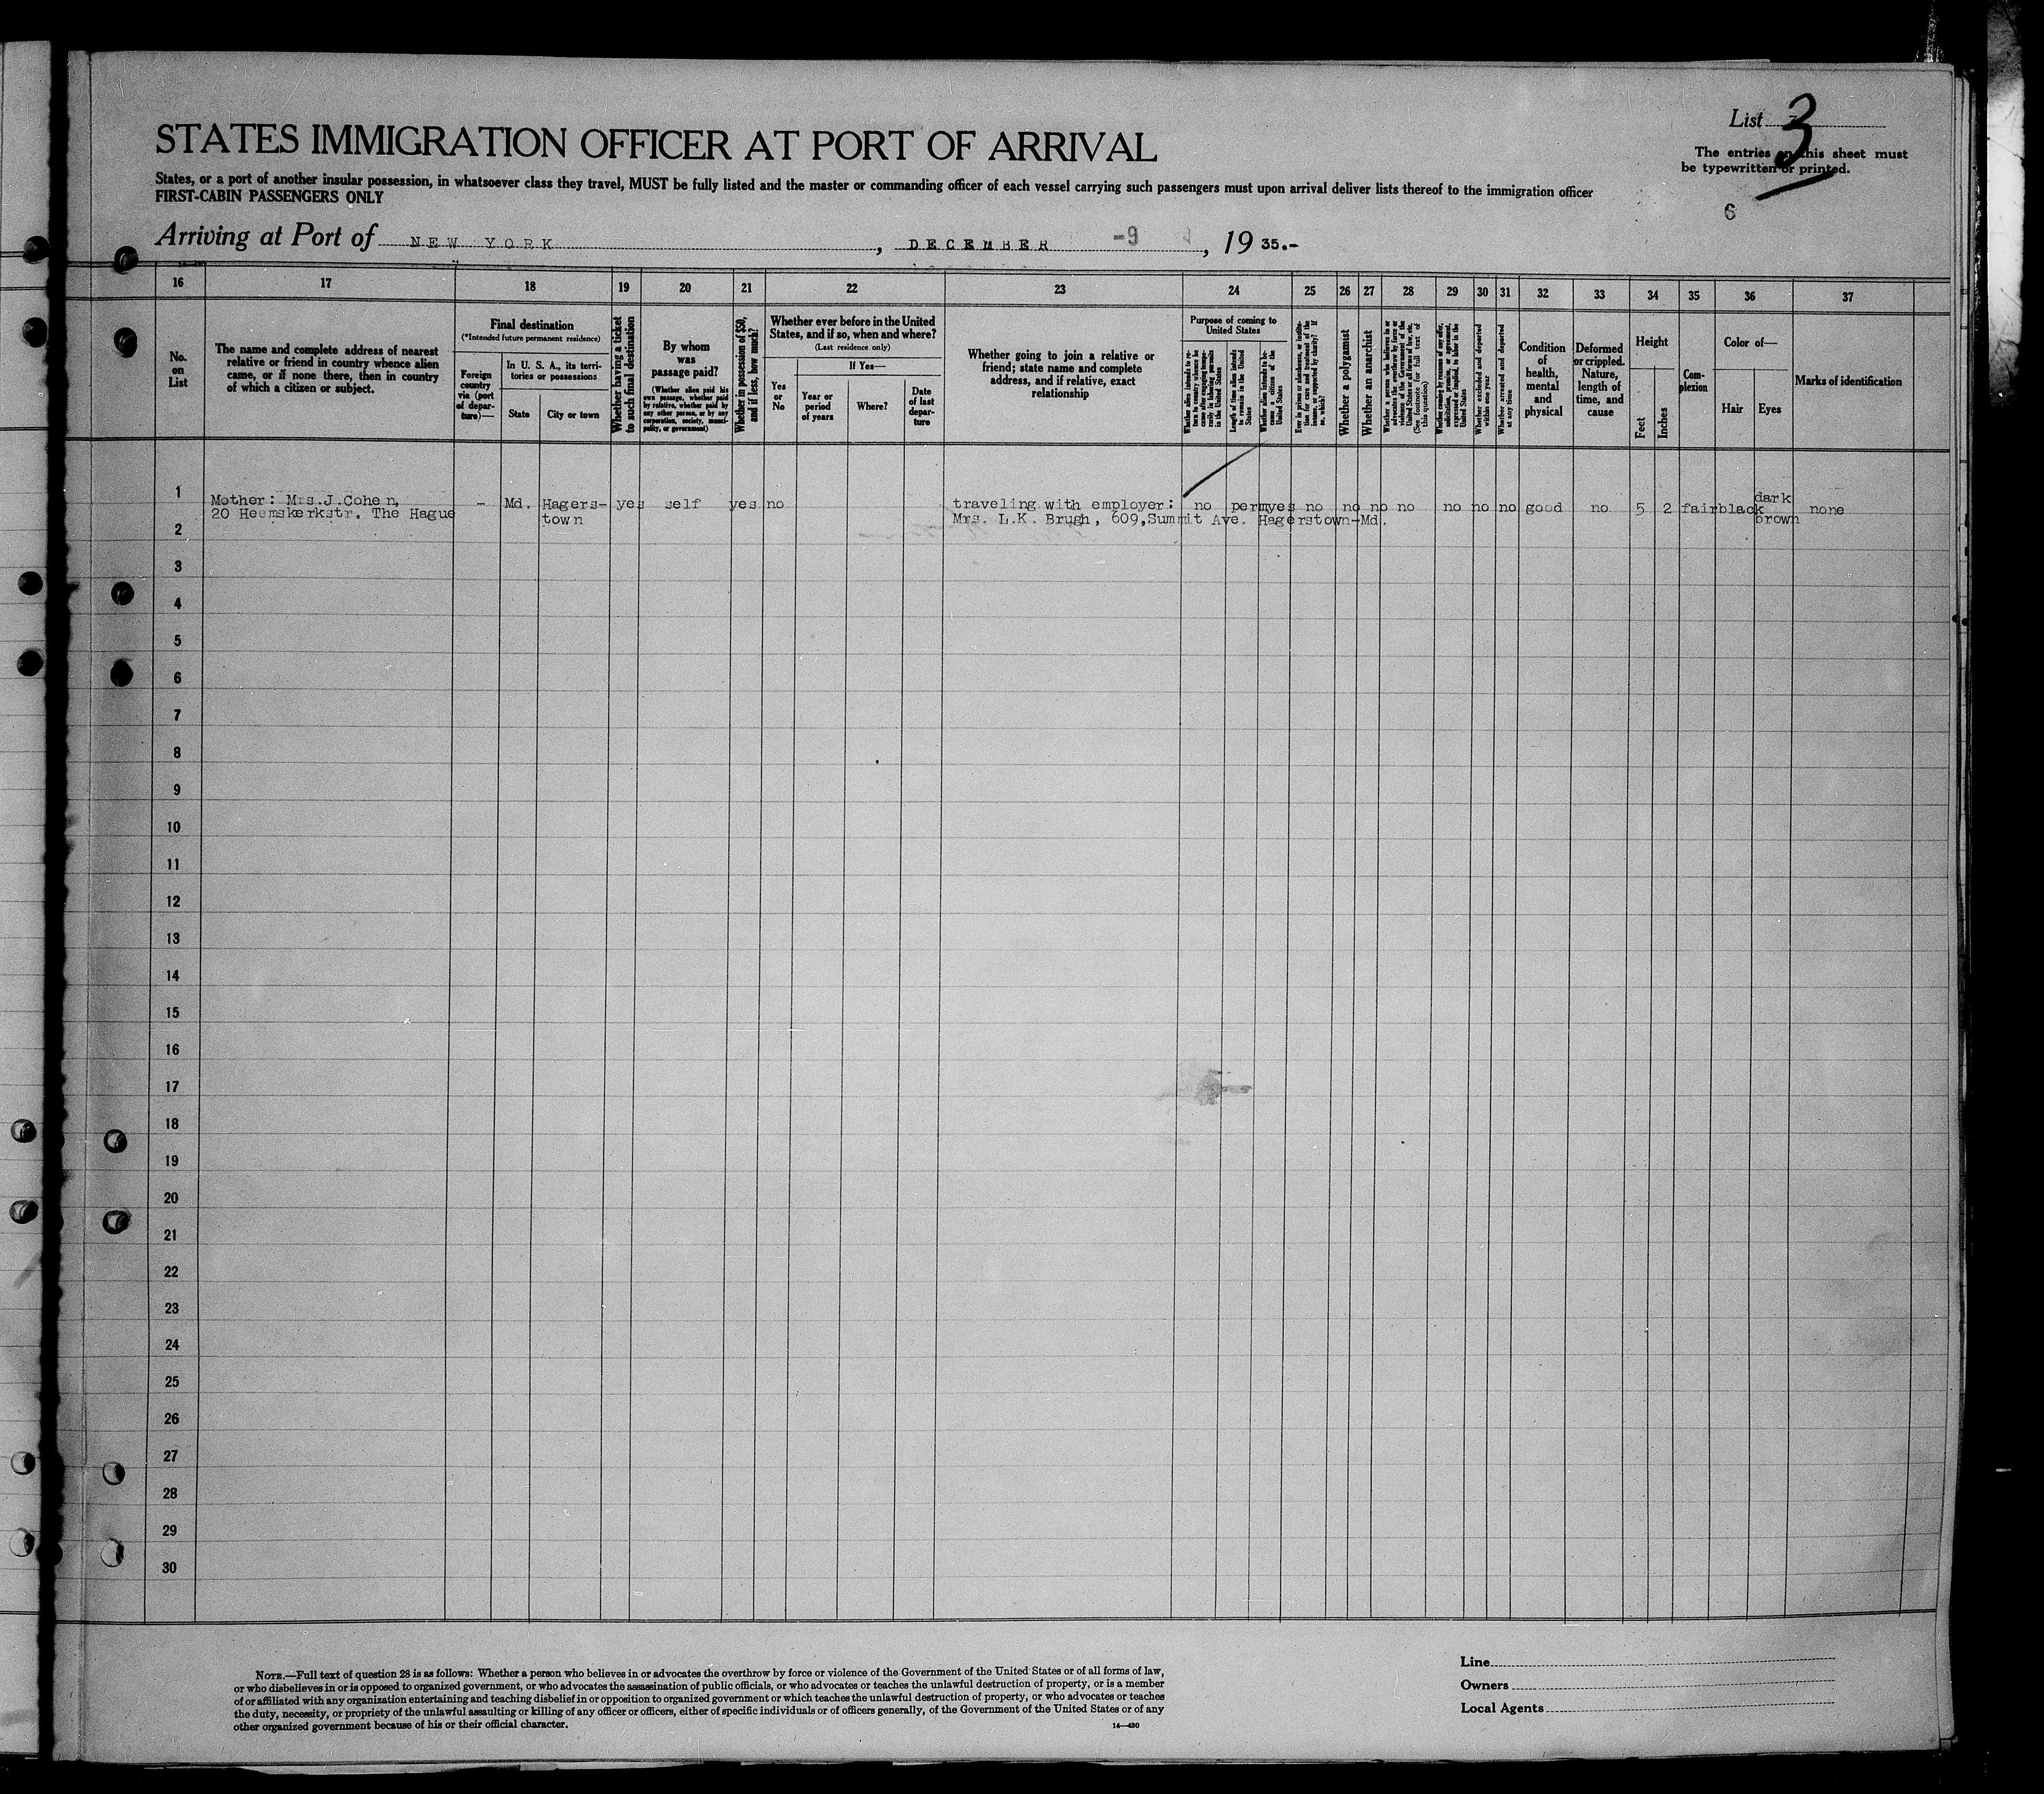 List 3
STATES IMMIGRATION OFFICER AT PORT OF ARRIVAL
The entries on this sheet must
be typewritten or printed.
States, or a port of another insular possession, in whatsoever class they travel, MUST be fully listed and the master or commanding officer of each vessel carrying such passengers must upon arrival deliver lists thereof to the immigration officer
FIRST-CABIN PASSENGERS ONLY
6
Arriving at Port of NEW YORK, DECEMBER -9, 1935.-
16 17 18 19 20 21 22 23 24 25 26 27 28 29 30 31 32 33 34 35 36 37
No.
on
List
The name and complete address of nearest
relative or friend in country whence alien
came, or if none there, then in country
of which a citizen or subject.
Final destination
(*Intended future permanent residence)
Foreign
country
via (port
of depar-
ture)—
In U. S. A., its terri-
tories or possessions
State
City or town
Whether having a ticket
to such final destination
By whom
was
passage paid?
(Whether alien paid his
own passage, whether paid
by relative, whether paid by
any other person, or by any
corporation, society, munici-
pality, or government)
Whether in possession of $50,
and if less, how much?
Whether ever before in the United
States, and if so, when and where?
(Last residence only)
Yes
or
No
If Yes—
Year or
period
of years
Where?
Date
of last
depar-
ture
Whether going to join a relative or
friend; state name and complete
address, and if relative, exact
relationship
Purpose of coming to
United States
Whether alien intends to re-
turn to country whence he
came after engaging tempo-
rarily in laboring pursuits
in the United States
Length of time alien intends
to remain in the United
States
Whether alien intends to be-
come a citizen of the
United States
Ever in prison or almshouse, or institu-
tion for care and treatment of the
insane, or supported by charity? If
so, which?
Whether a polygamist
Whether an anarchist
Whether a person who believes in or
advocates the overthrow by force or
violence of the Government of the
United States or all forms of law, etc.
(See footnote for full text of
this question)
Whether coming by reason of any offer,
solicitation, promise, or agreement,
expressed or implied, to labor in the
United States
Whether excluded and deported
within one year
Whether arrested and deported
at any time
Condition
of
health,
mental
and
physical
Deformed
or crippled.
Nature,
length of
time, and
cause
Height
Feet
Inches
Com-
plexion
Color of—
Hair
Eyes
Marks of identification
1
Mother: Mrs.J.Cohen, - Md. Hagers- yes self yes no traveling with employer: no perm yes no no no no no no no good no 5 2 fair black dark none
20 Heemskerkstr. The Hague town Mrs. L.K. Brugh, 609,Summit Ave. Hagerstown-Md. brown
2
3
4
5
6
7
8
9
10
11
12
13
14
15
16
17
18
19
20
21
22
23
24
25
26
27
28
29
30
NOTE.—Full text of question 28 is as follows: Whether a person who believes in or advocates the overthrow by force or violence of the Government of the United States or of all forms of law,
or who disbelieves in or is opposed to organized government, or who advocates the assassination of public officials, or who advocates or teaches the unlawful destruction of property, or is a member
of or affiliated with any organization entertaining and teaching disbelief in or opposition to organized government or which teaches the unlawful destruction of property, or who advocates or teaches
the duty, necessity, or propriety of the unlawful assaulting or killing of any officer or officers, either of specific individuals or of officers generally, of the Government of the United States or of any
other organized government because of his or their official character.
14—430
Line
Owners
Local Agents